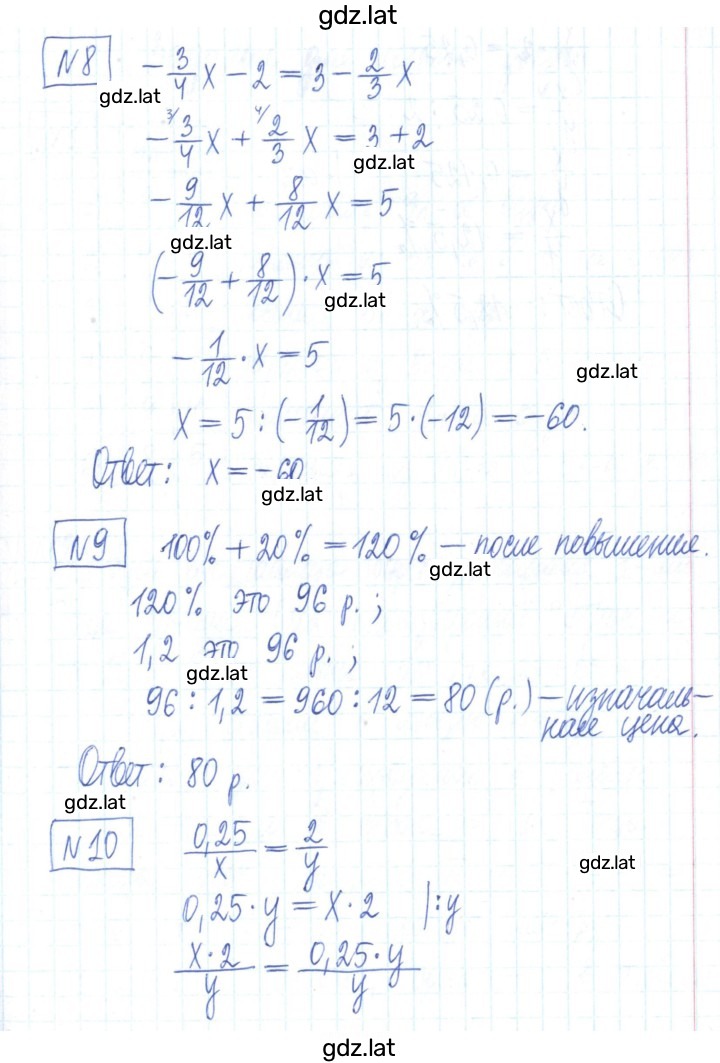 gdz.lat
№8 -3/4 x - 2 = 3 - 2/3 x
gdz.lat
-3/4 x + 2/3 x = 3 + 2
gdz.lat
-9/12 x + 8/12 x = 5
gdz.lat
(-9/12 + 8/12) · x = 5
gdz.lat
-1/12 · x = 5
gdz.lat
x = 5 : (-1/12) = 5 · (-12) = -60.
Ответ: x = -60
gdz.lat
№9 100% + 20% = 120% — после повышения.
gdz.lat
120% это 96 р.;
1,2 это 96 р.;
gdz.lat
96 : 1,2 = 960 : 12 = 80 (р.) — изначаль-
ная цена.
Ответ: 80 р.
gdz.lat
№10 0,25/x = 2/y
gdz.lat
0,25 · y = x · 2 |:y
x · 2/y = 0,25 · y/y
gdz.lat